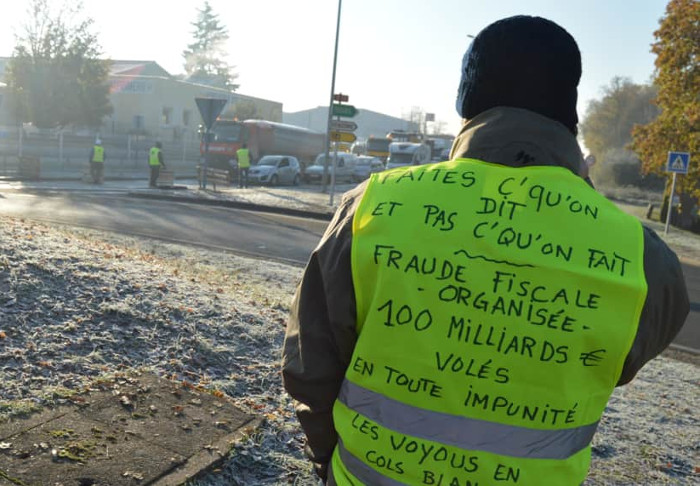 FAITES C'QU'ON
DIT
ET PAS C'QU'ON FAIT
FRAUDE FISCALE
- ORGANISÉE -
100 MILLIARDS €
VOLÉS
EN TOUTE IMPUNITÉ
LES VOYOUS EN
COLS BLAN